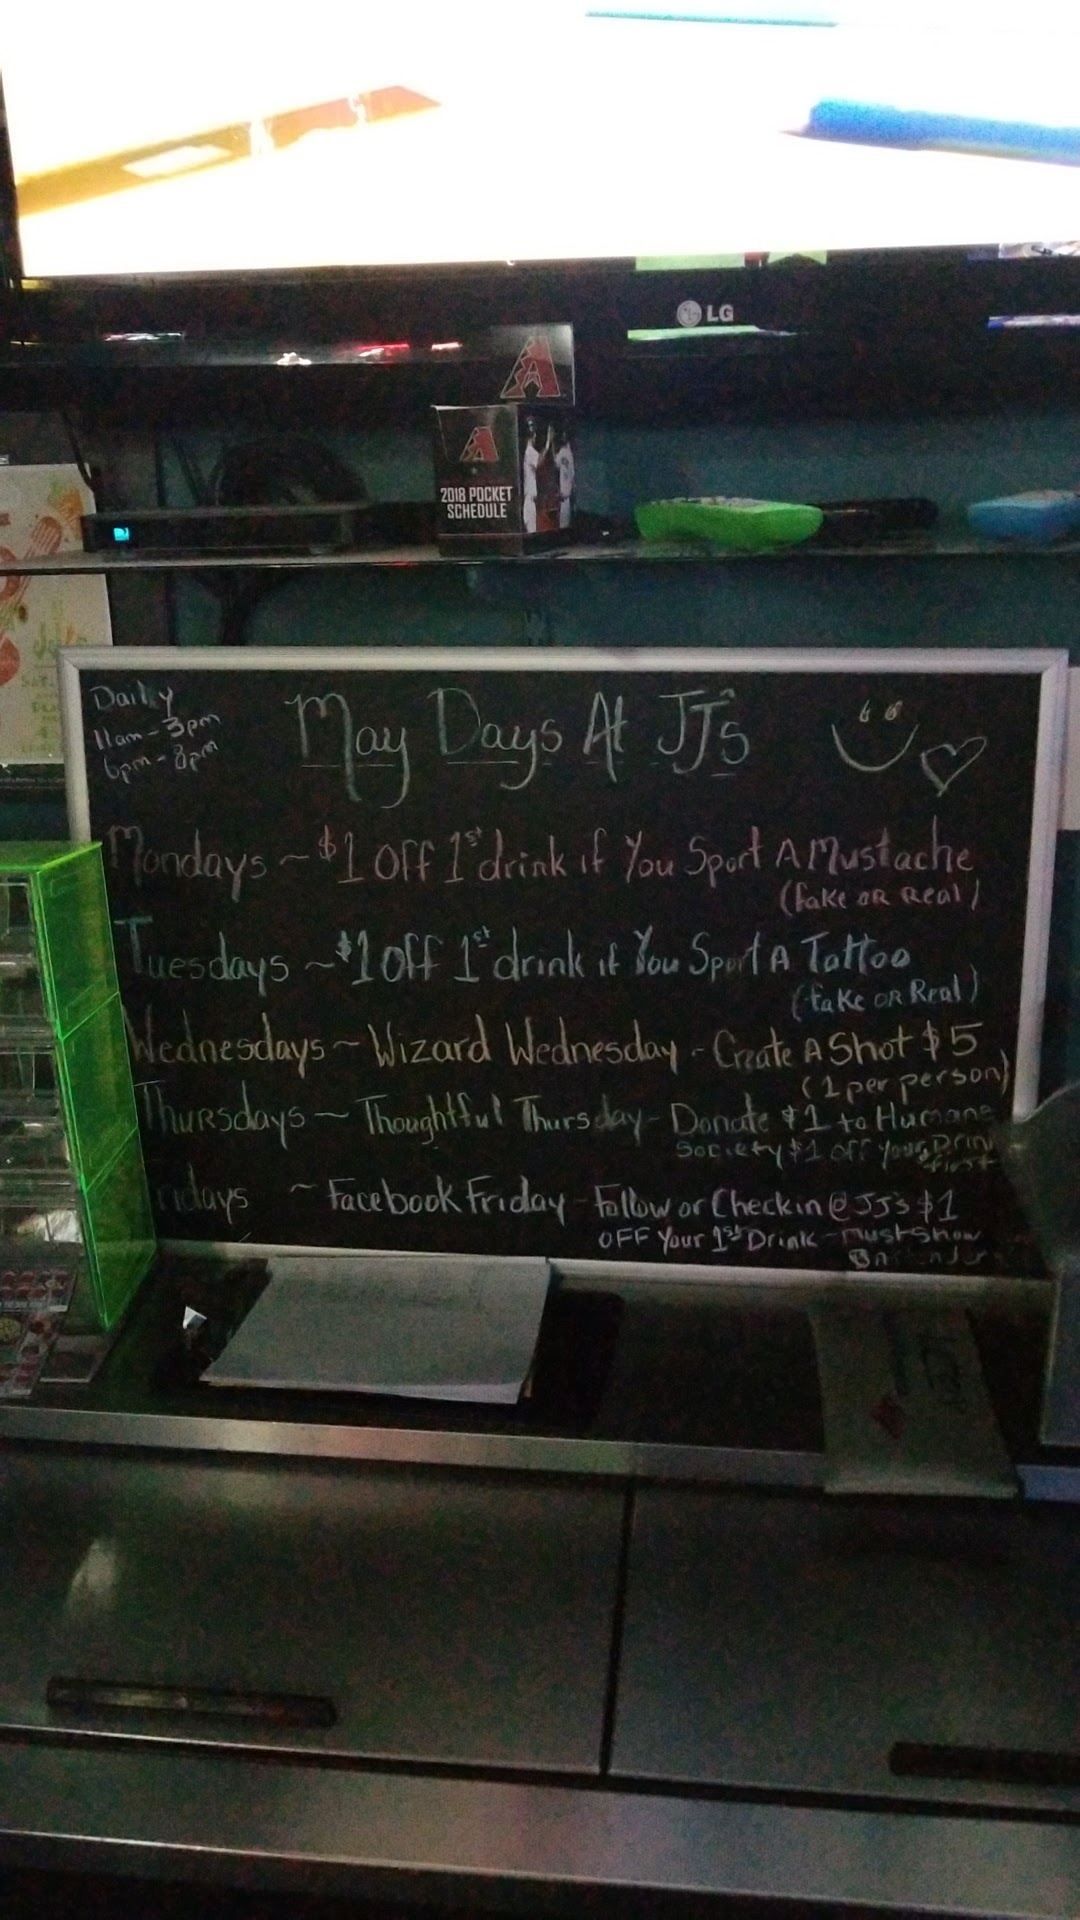 LG
A
A
2018 POCKET
SCHEDULE
Daily
11am - 3pm
6pm - 8pm
May Days At JJ's
Mondays ~ $1 Off 1st drink if You Sport A Mustache
(fake or Real)
Tuesdays ~ $1 Off 1st drink if You Sport A Tattoo
(fake or Real)
Wednesdays ~ Wizard Wednesday - Create A Shot $5
(1 per person)
Thursdays ~ Thoughtful Thursday - Donate $1 to Humane
Society $1 off your Drin
first
ridays ~ Facebook Friday - Follow or Checkin @ JJ's $1
OFF Your 1st Drink - must show